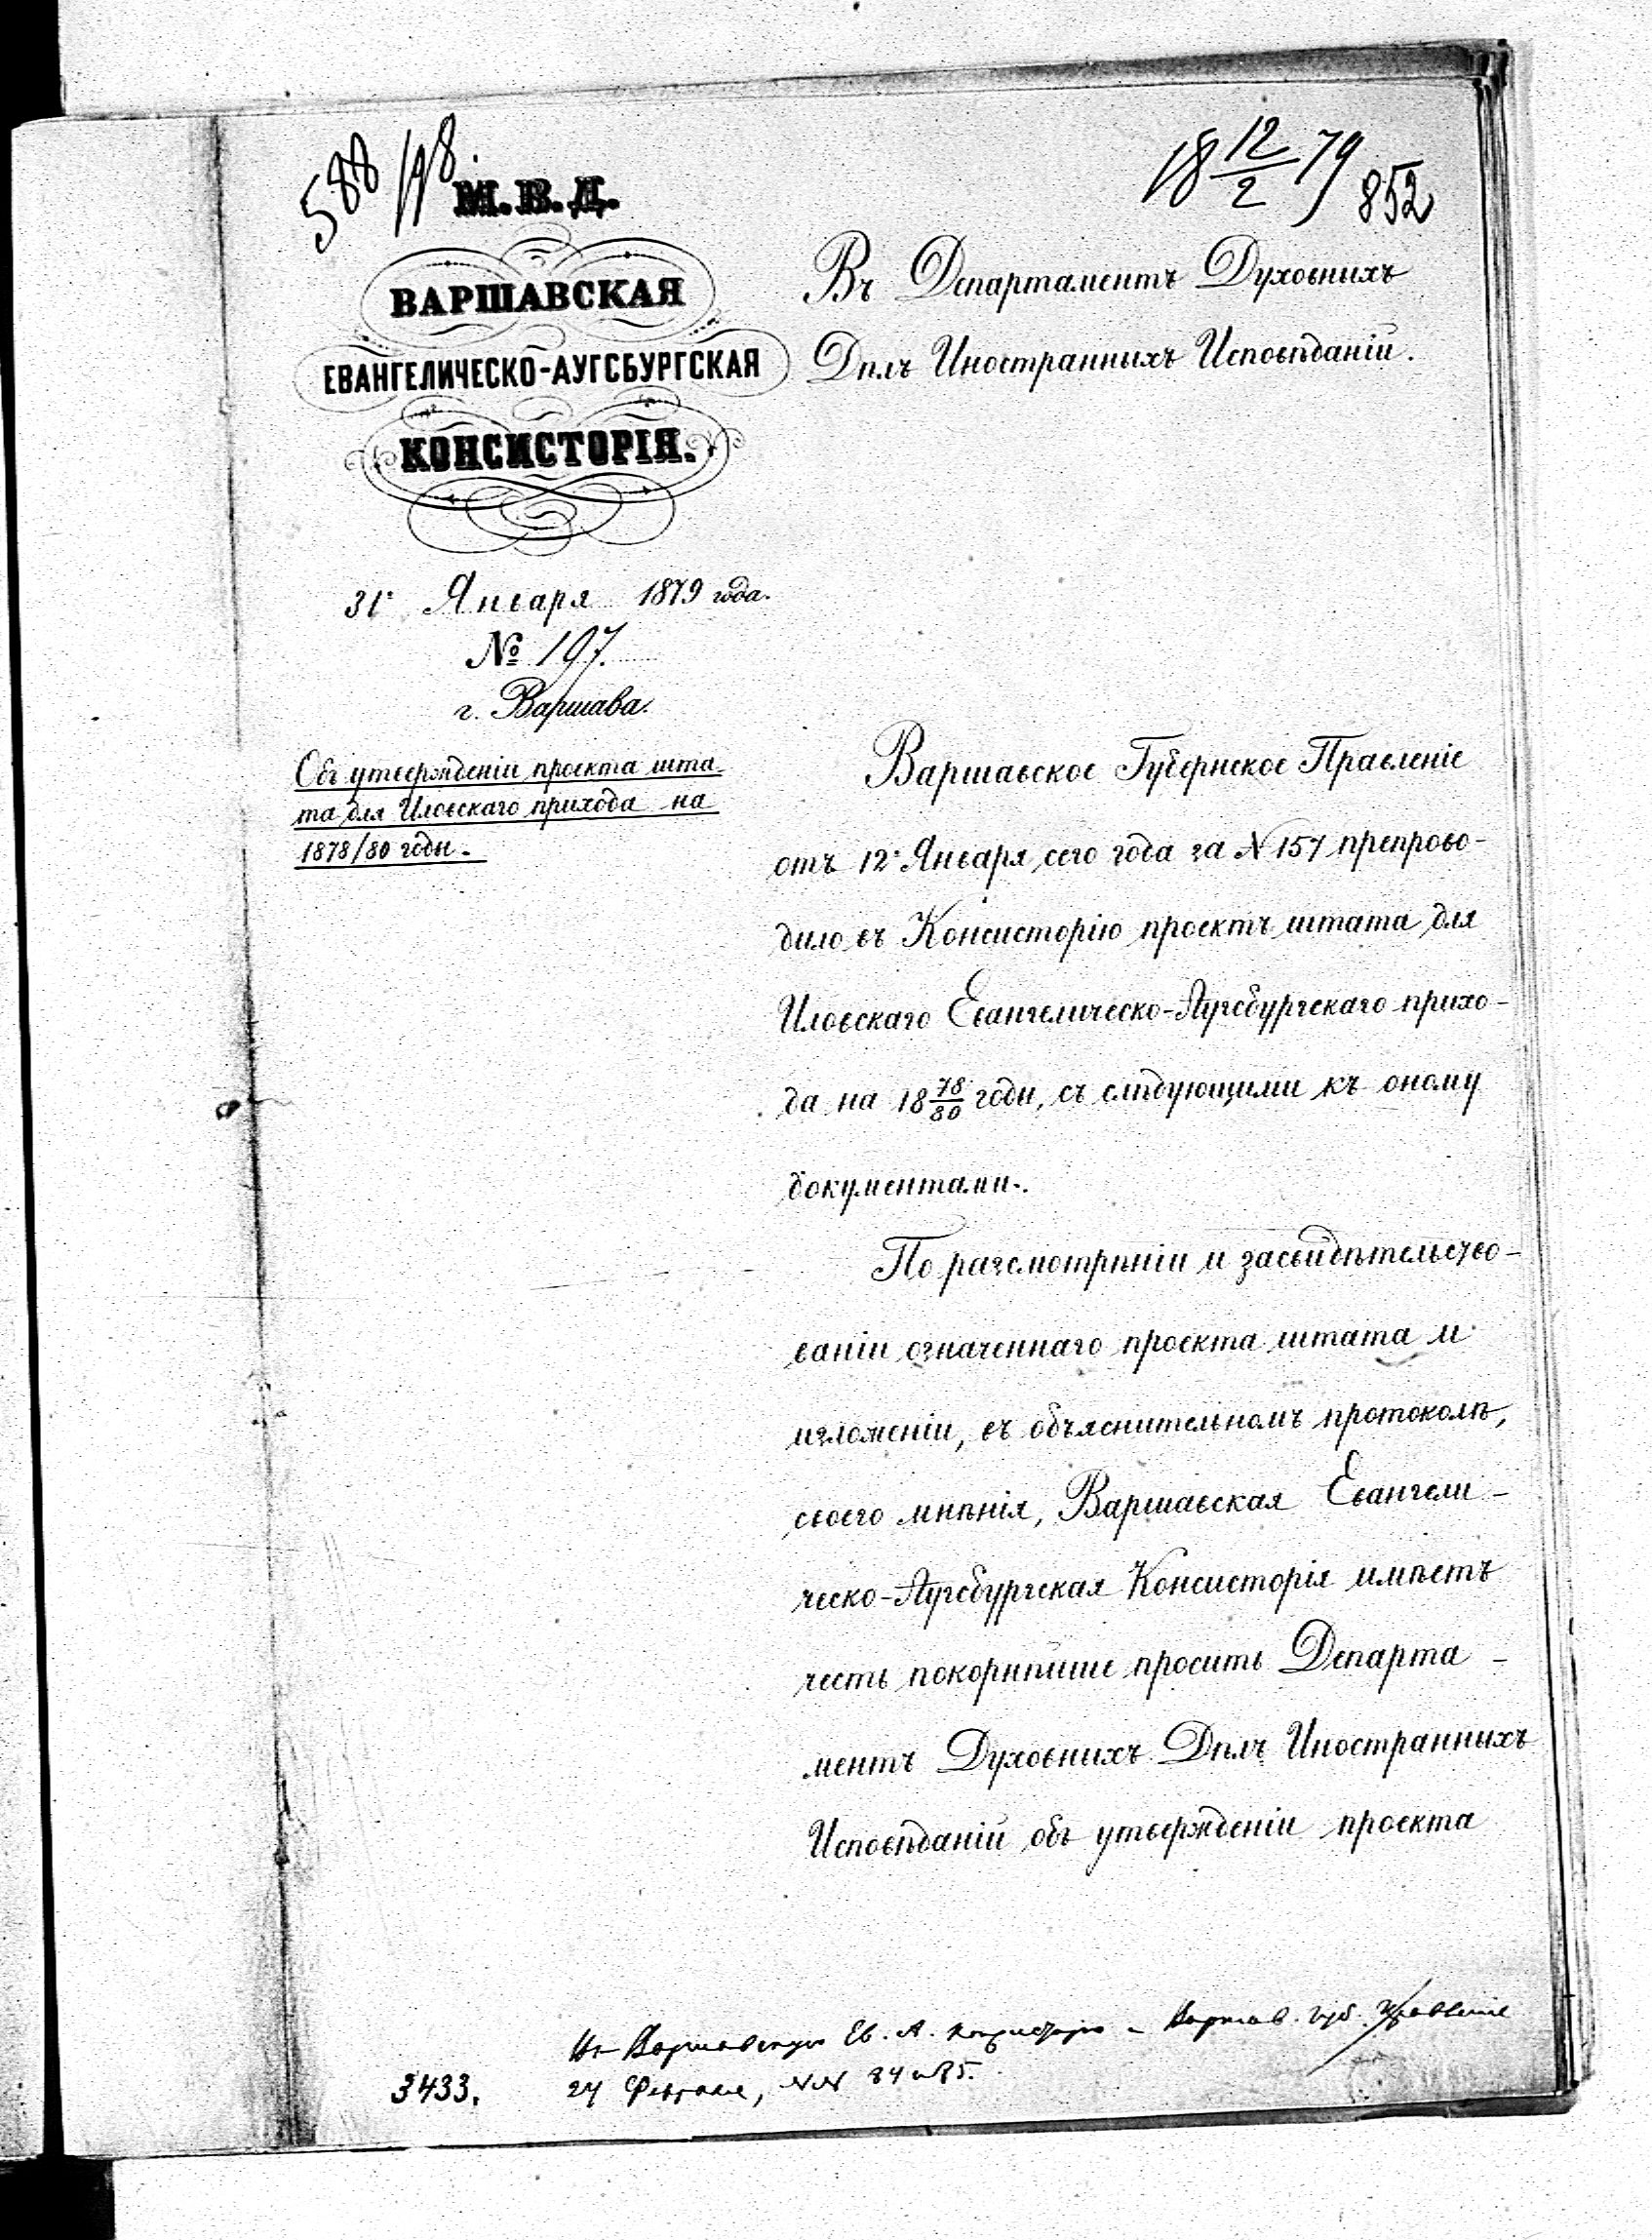 588/198.
18 12/2 79
852
М.В.Д.
ВАРШАВСКАЯ
ЕВАНГЕЛИЧЕСКО-АУГСБУРГСКАЯ
КОНСИСТОРІЯ.
31 Января 1879 года.
№ 197.
г. Варшава.
Объ утвержденіи проекта шта
та для Иловскаго прихода на
1878/80 годы.
Въ Департаментъ Духовныхъ
Дѣлъ Иностранныхъ Исповѣданій.
Варшавское Губернское Правленіе
отъ 12 Января сего года за N 157 препрово-
дило въ Консисторію проектъ штата для
Иловскаго Евангелическо-Аугсбургскаго прихо-
да на 18 78/80 годы, съ слѣдующими къ оному
документами.
По разсмотрѣніи и засвидѣтельство-
ваніи означеннаго проекта штата и
изложеніи, въ объяснительномъ протоколѣ,
своего мнѣнія, Варшавская Евангели-
ческо-Аугсбургская Консисторія имѣетъ
честь покорнѣйше просить Департа-
ментъ Духовныхъ Дѣлъ Иностранныхъ
Исповѣданій объ утвержденіи проекта
Варшавскую Ев. А. Консисторію Варшав. Губ. Правленіе
24 Февраля, NN 84 и 85.
3433.